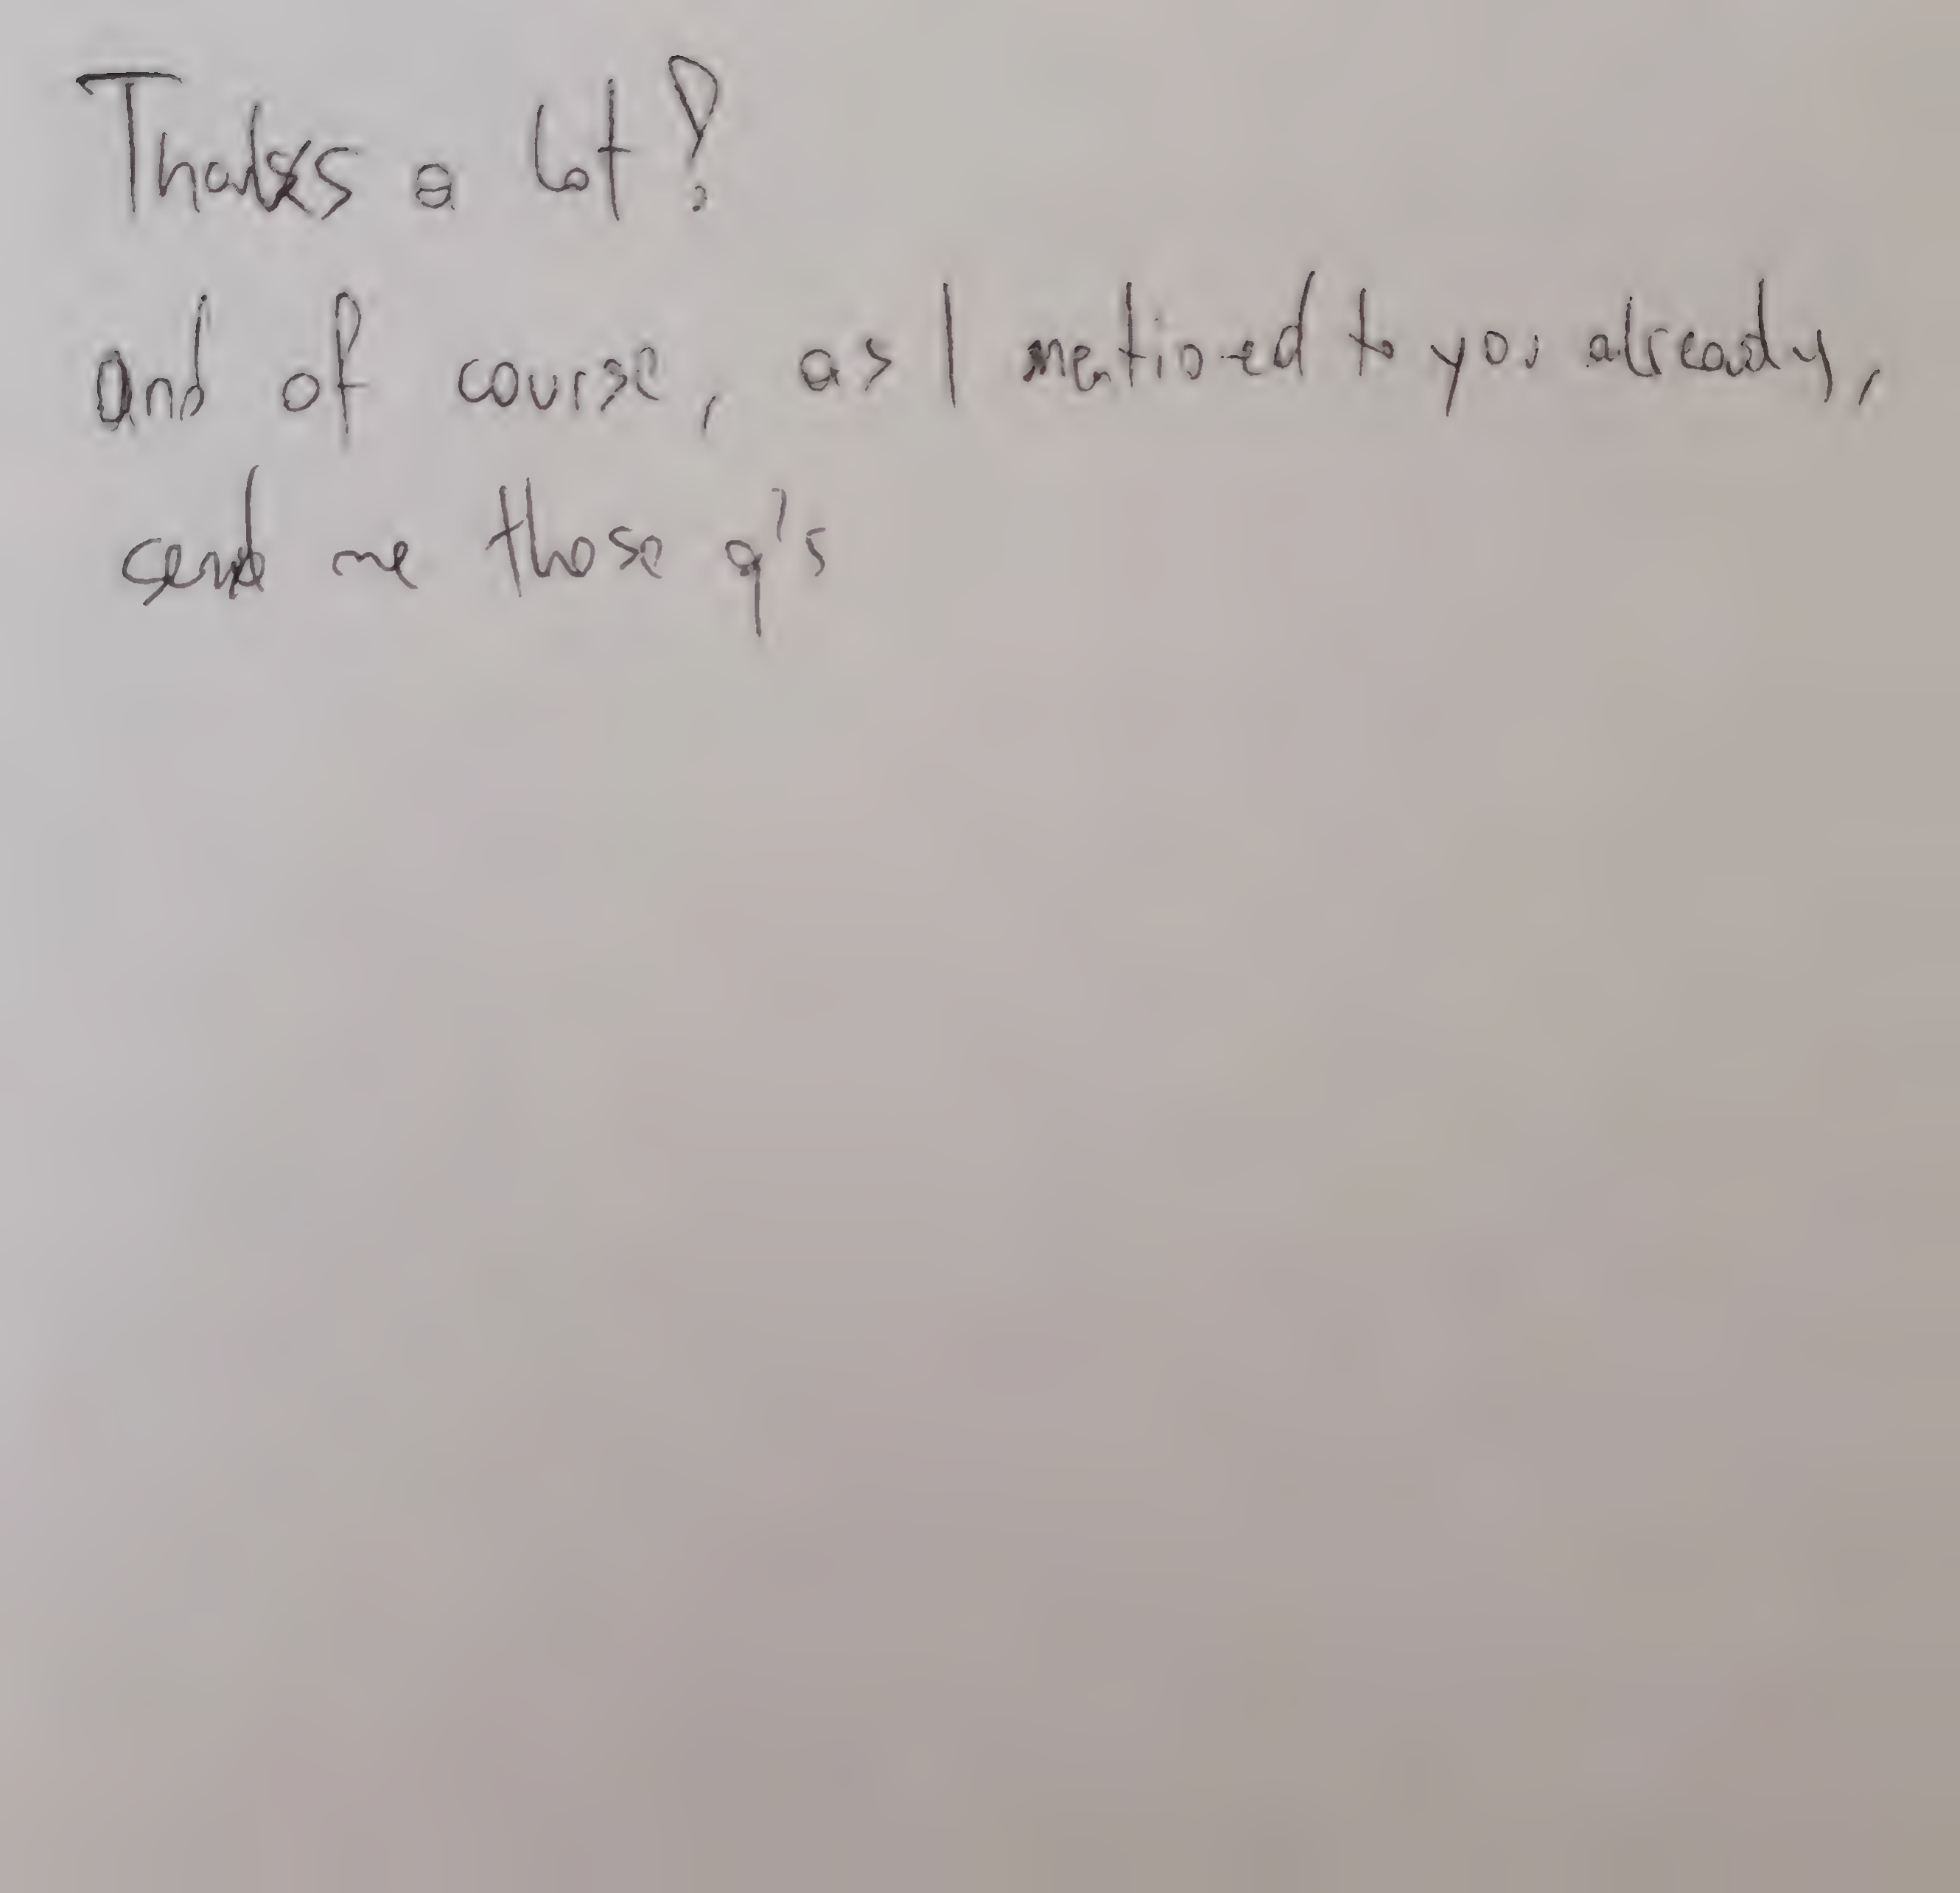 Thanks a lot!
and of course, as I mentioned to you already,
send me those q's